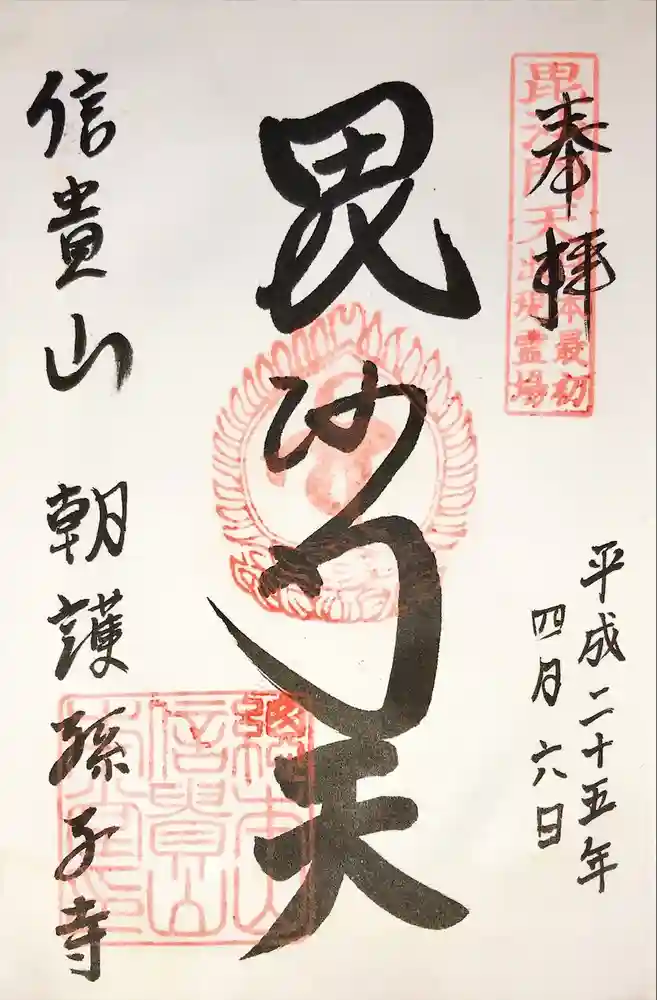 奉拝
毘沙門天
日本最初
出現霊場
平成二十五年
四月六日
毘沙門天
信貴山 朝護孫子寺
信貴山